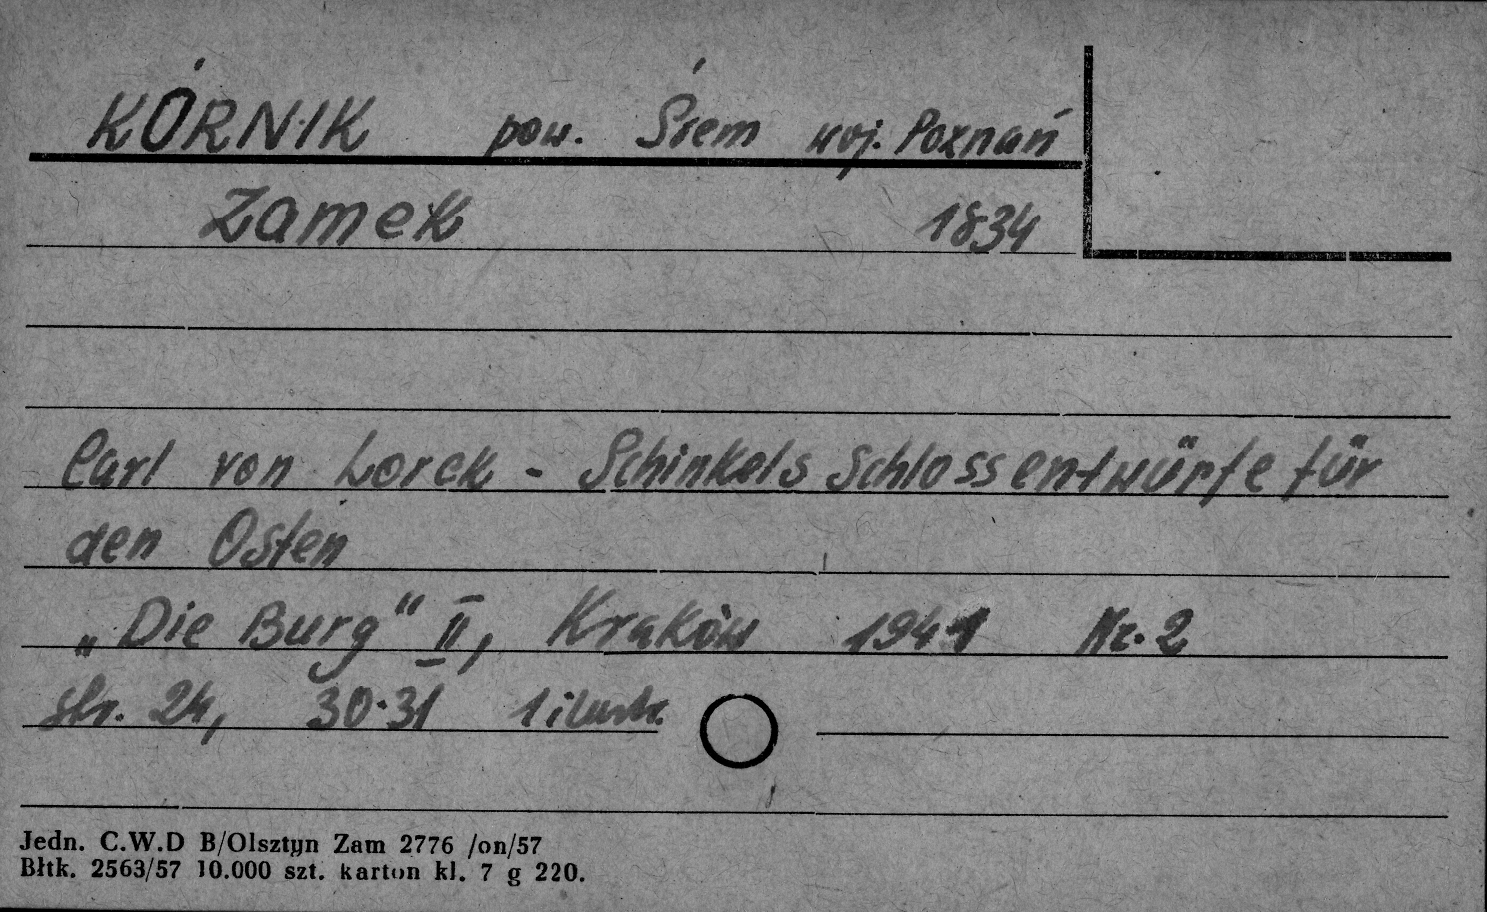 KÓRNIK pow. Śrem woj. Poznań
Zamek 1834
Carl von Lorck - Schinkels Schlossentwürfe für
den Osten
„Die Burg" II, Kraków 1941 Nr. 2
str. 24, 30-31 1 ilustr.
Jedn. C.W.D B/Olsztyn Zam 2776 /on/57
Błtk. 2563/57 10.000 szt. karton kl. 7 g 220.